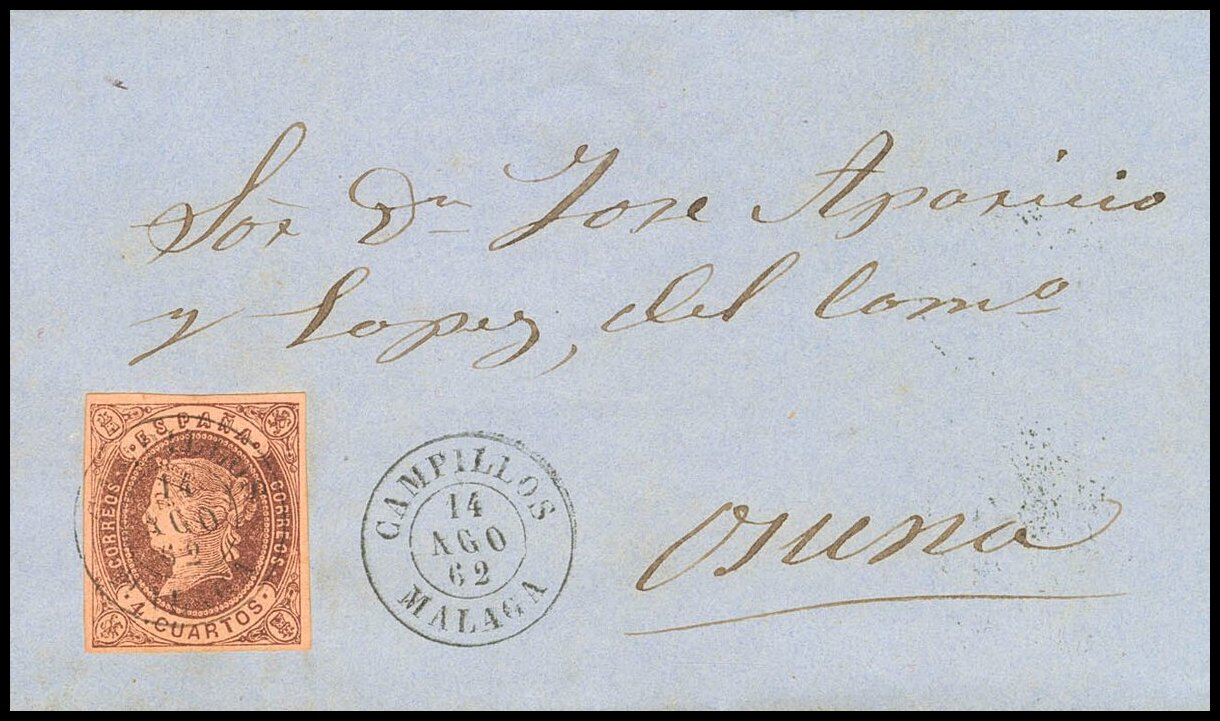 Sor Dn Jose Aparicio
y Lopez, del Como
Osuna
ESPAÑA
CORREOS
CORREOS
4. CUARTOS
14
AGO
CAMPILLOS
14
AGO
62
MALAGA